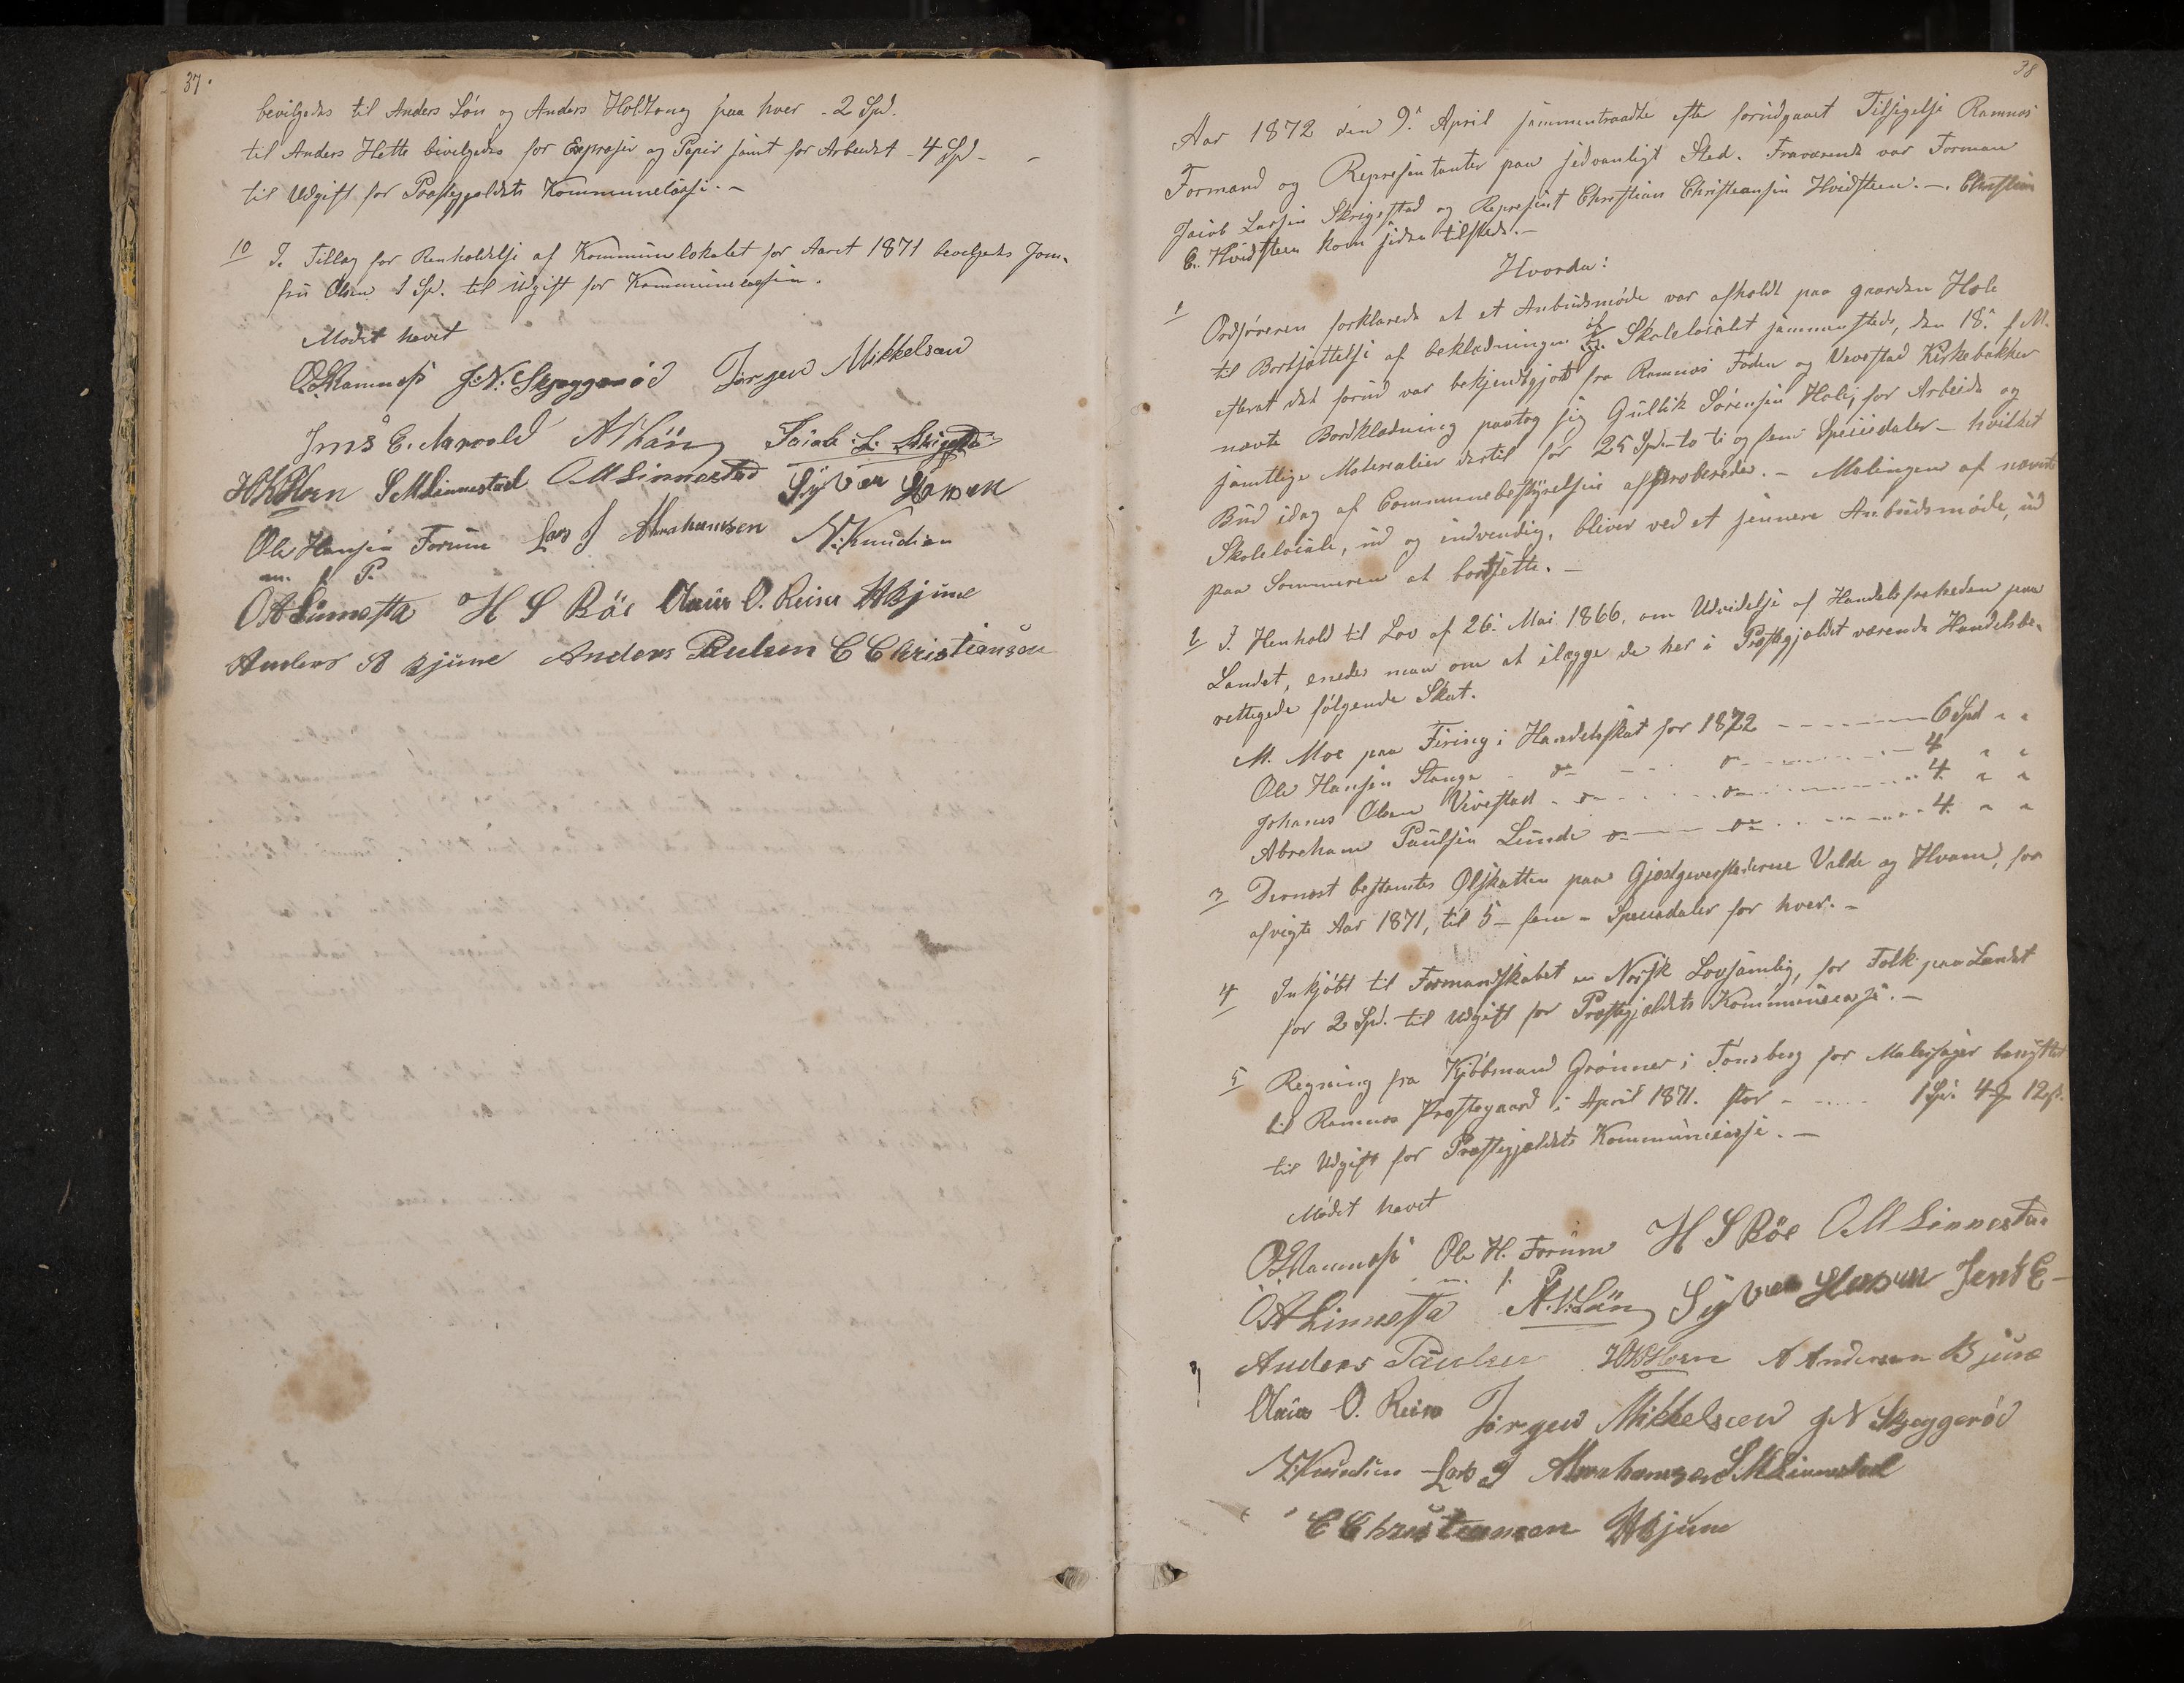 37.
bevilgedes til Anders Lön og Anders Holtong paa hver - 2 Spd.
til Anders Hette bevilgedes for Expresser og Papir samt for Arbeidet - 4 Spd -
til Udgift for Præstegjeldets Kommunecasse. -
10 I Tillæg for Renholdelse af Kommunelokalet for Aaret 1871 bevilgedes Jom-
fru Olsen 1 Sp. til Udgift for Kommunecassen.
Mødet hævet
O. Ramness J. N. Skjeggerød Jørgen Mikkelsen
Jens E. A. V. Lön Jacob L. Skrigsta
HKHorn S M Linnestad O M Linnestad Syver Hansen
Ole Hansen Forum Lars J Abrahamsen N. Knudsen
m. f. P.
O A Linnesta H S Böe Claus O. Reine HBjune
Anders A Bjune Anders Paulsen C Christiansen
38
Aar 1872 den 9de April sammentraadte efter forudgaaet Tilsigelse Ramnæs
Formænd og Repræsentanter paa sedvanligt Sted. Fraværende var Formand
Jacob Larsen Skrigestad og Repræsent Christian Christiansen Hvidsteen. - Christian
C. Hvidsteen kom siden tilstede. -
Hvorda:
1 Ordføreren forklarede at et Anbudsmøde var afholdt paa gaarden Hole
til Bortsættelse af beklædningen af Skolelocalet sammesteds, den 18de f. M.
efterat det forud var bekjendtgjort fra Ramnæs Foden og Vivestad Kirkebakker
nævte Bordklædning paatog sig Gullik Sørensen Hole, for Arbeide og
samtlige Materialier dertil for 25 Spd - to ti og fem Speciedaler - hvilket
Bud idag af Communebestyrelsen approberedes. - Malingen af nævnte
Skolelocale, ud og indvendig, bliver ved et senere Anbudsmøde, ud
paa Sommeren at bortsette. -
2 I Henhold til Lov af 26de Mai 1866, om Udvidelse af Handelsfriheden paa
Landet, enedes man om at ilægge de her i Præstegjældet værende Handelsbe-
rettigede følgende Skat.
M. Moe paa Firing i Handelsskat for 1872 - - - - 6 Spd " "
Ole Hansen Stange - do - - - do - - - 4 " "
Johannes Olsen Vivestad - do - - - do - - - 4. " "
Abraham Paulsen Lunde do - - - do - - - 4. " "
3 Dernæst bestemtes Ølskatten paa Gjæstgeverstederne Valde og Hvam, for
afvigte Aar 1871, til 5 - fem - Speciedaler for hver. -
4 Inkjøbt til Formandskabet en Norsk Lovsamling, for Folk paa Landet
for 2 Spd. til Udgift for Præstegjældets Kommunecasse. -
5 Regning fra Kjøbmand Grønner i Tønsberg for Malersager benyttet
til Ramnæs Præstegaard i April 1871. stor - - - 1 Spd. 4 12 s.
til Udgift for Præstegjældets Kommunecasse. -
Mødet hævet
O. Ramness Ole H. Forum H S Böe O M Linnestad
m. f. P
O A Linnesta A. V. Lön Syver Hansen Jens E -
Anders Paulsen HKHorn A Andersen Bjune
Claus O. Reine Jørgen Mikkelsen J N Skjeggerød
N. Knudsen Lars J Abrahamsen S M Linnestad
C Christiansen HBjune